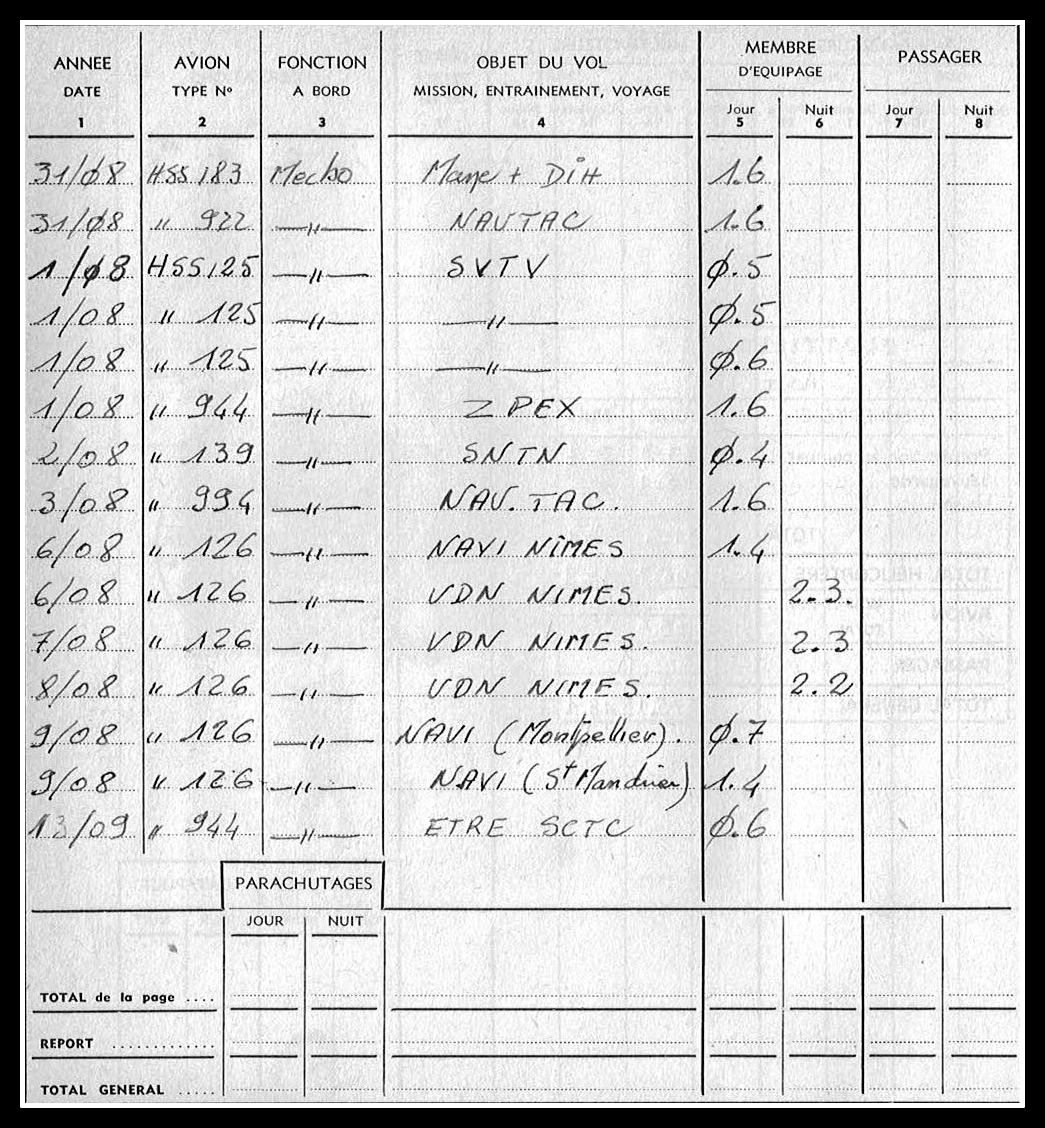 ANNEE AVION FONCTION OBJET DU VOL MEMBRE PASSAGER
DATE TYPE Nº A BORD MISSION, ENTRAINEMENT, VOYAGE D'EQUIPAGE
Jour Nuit Jour Nuit
1 2 3 4 5 6 7 8
31/ø8 HSS 183 Mecbo + DiH 1.6
31/ø8 〃 922 —〃— NAVTAC 1.6
1/ø8 HSS 125 —〃— SVTV ø.5
1/08 〃 125 —〃— —〃— ø.5
1/08 〃 125 —〃— —〃— ø.6
1/08 〃 944 —〃— Z PEX 1.6
2/08 〃 139 —〃— SNTN ø.4
3/08 〃 994 —〃— NAV.TAC. 1.6
6/08 〃 126 —〃— NAVI NîMES 1.4
6/08 〃 126 —〃— VDN NIMES. 2.3.
7/08 〃 126 —〃— VDN NIMES. 2.3
8/08 〃 126 —〃— VDN NIMES. 2.2
9/08 〃 126 —〃— NAVI (Montpellier). ø.7
9/08 〃 126 —〃— NAVI (St Mandrier) 1.4
13/09 〃 944 —〃— ETRE SCTC ø.6
PARACHUTAGES
JOUR NUIT
TOTAL de la page ....
REPORT .............
TOTAL GENERAL .....